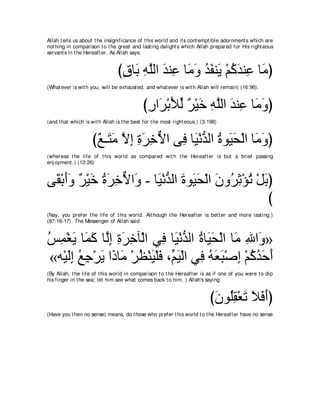 Allah tells us about the insignificance of this world and its contemptible adornments which are
nothing in comparison to the great and lasting delights which Allah prepared for His righteous
servants in the Hereafter. As Allah says:
(مَا عِندَكُمْ يَنفَدُ وَمَا عِندَ اللَّهِ بَاقٍ)
(Whatever is with you, will be exhausted, and whatever is with Allah will remain) (16:96).
(وَمَا عِندَ اللَّهِ خَيْرٌ لِّلاٌّبْرَارِ)
(and that which is with Allah is the best for the most righteous.) (3:198)
(وَمَا الْحَيَوةُ الدُّنْيَا فِى الاٌّخِرَةِ إِلاَّ مَتَـعٌ)
(whereas the life of this world as compared with the Hereafter is but a brief passing
enjoyment.) (13:26)
(بَلْ تُؤْثِرُونَ الْحَيَوةَ الدُّنْيَا - وَالاٌّخِرَةُ خَيْرٌ وَأَبْقَى
)
(Nay, you prefer the life of this world. Although the Hereafter is better and more lasting.)
(87:16-17). The Messenger of Allah said:
«وَاللهِ مَا الْحَيَاةُ الدُّنْيَا فِي الْآخِرَةِ إِلَّا كَمَا يَغْمِسُ
أَحَدُكُمْ إِصْبَعَهُ فِي الْيَمِّ، فَلْيَنْظُرْ مَاذَا يَرْجِعُ إِلَيْهِ»
(By Allah, the life of this world in comparison to the Hereafter is as if one of you were to dip
his finger in the sea; let him see what comes back to him. ) Allah's saying:
(أَفَلاَ تَعْقِلُونَ)
(Have you then no sense) means, do those who prefer this world to the Hereafter have no sense